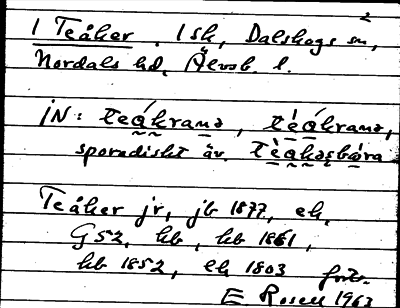 2
1 Teåker. 1 sk, Dalskogs sn,
Nordals hd, Älvsb. l.
iN: teåkrana, tèåkrana,
sporadiskt äv. tèakəsbåra
Teåker jr, jb 1877, ek,
G52, kb, kb 1861,
kb 1852, ek 1803 forts.
E Rosell 1963